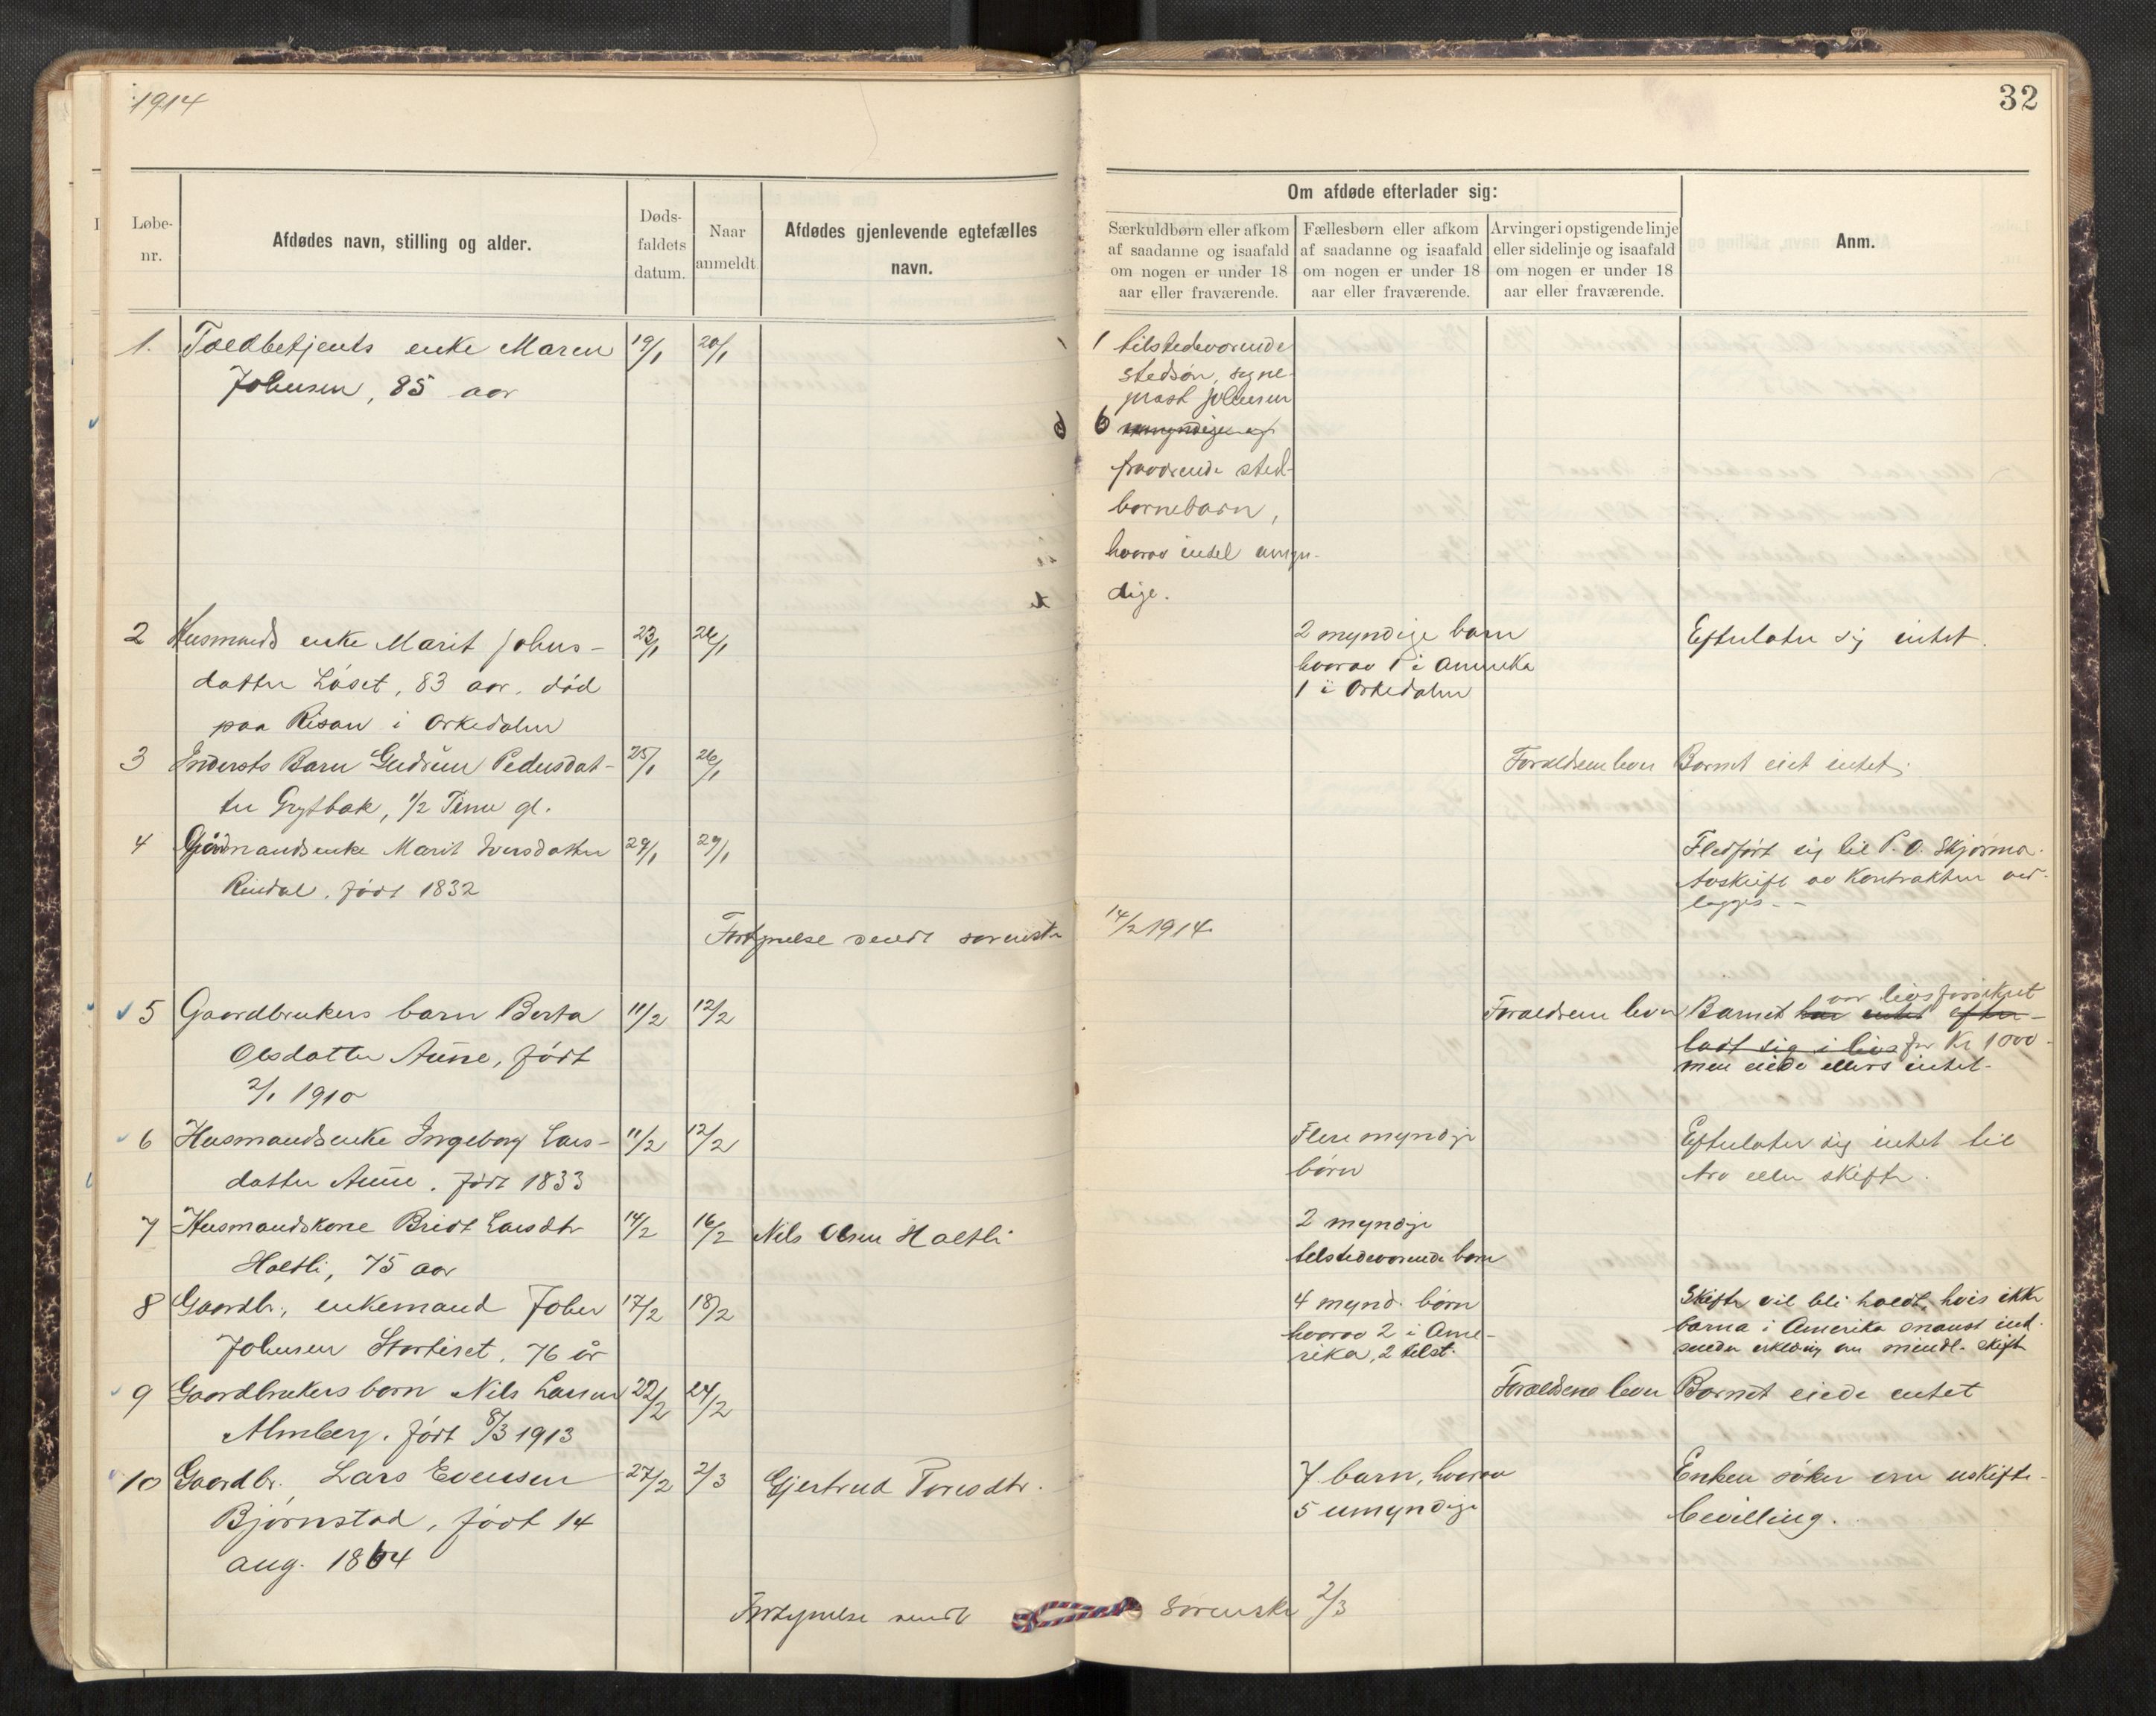 1914
32
Løbe-
nr.
Afdødes navn, stilling og alder.
Døds-
faldets
datum.
Naar
anmeldt
Afdødes gjenlevende egtefælles
navn.
Om afdøde efterlader sig:
Særkuldbørn eller afkom
af saadanne og isaafald
om nogen er under 18
aar eller fraværende.
Fællesbørn eller afkom
af saadanne og isaafald
om nogen er under 18
aar eller fraværende.
Arvinger i opstigende linje
eller sidelinje og isaafald
om nogen er under 18
aar eller fraværende.
Anm.
1. Toldbetjents enke Maren 19/1 20/1
Johnsen, 85 aar
1 tilstedeværende
stedsøn, sogne-
prest Johnsen
6
fraværende sted-
børnebarn,
hvorav endel umyn-
dige.
2 Husmands enke Marit Johns- 23/1 26/1 2 myndige barn Efterlater sig intet.
datter Løset, 83 aar, død hvorav 1 i Amerika
paa Risan i Orkedalen 1 i Orkedalen
3 Indersts Barn Gudrun Pedersdat- 25/1 26/1 Forældrene lever Barnet eiet intet.
ter Grytbak, 1/2 Time gl.
4 Gårdmandsenke Marit Iversdatter 29/1 29/1 Fledført sig til P. O. Skjørma.
Rindal, født 1832 Avskrift av Kontrakten ved-
lægges.
Fortegnelse sendt sorenskr 14/2 1914.
5 Gaardbrukers barn Berta 11/2 12/2 Forældrene lever Barnet har intet efter- var livsforsikret
Olsdatter Aune, født ladt sig i livs for Kr 1000
2/1 1910 men eiede ellers intet.
6 Husmandsenke Ingeborg Lars- 11/2 12/2 Flere myndige Efterlater sig intet til
datter Aune. født 1833 børn Arv eller skifte.
7 Husmandskone Bridt Larsdtr 14/2 16/2 Nils Olsen Holtli 2 myndige
Holtli, 75 aar tilstedeværende barn
8 Gaardbr., enkemand John 17/2 18/2 4 mynd. børn Skifte vil bli holdt, hvis ikke
Johnsen Stortiset, 76 år hvorav 2 i Ame- barna i Amerika snarest ind-
rika, 2 tilst. sender erklæring om mindl. skifte
9 Gaardbrukers barn Nils Larsen 22/2 24/2 Forældrene lever Barnet eiede intet
Almberg. født 8/3 1913
10 Gaardbr. Lars Evensen 27/2 2/3 Gjertrud Toresdtr. 7 barn, hvorav Enken søker om uskifte-
Bjørnstad, født 14 5 umyndige bevilling.
aug. 1864
Fortegnelse sendt Sorenskr 2/3